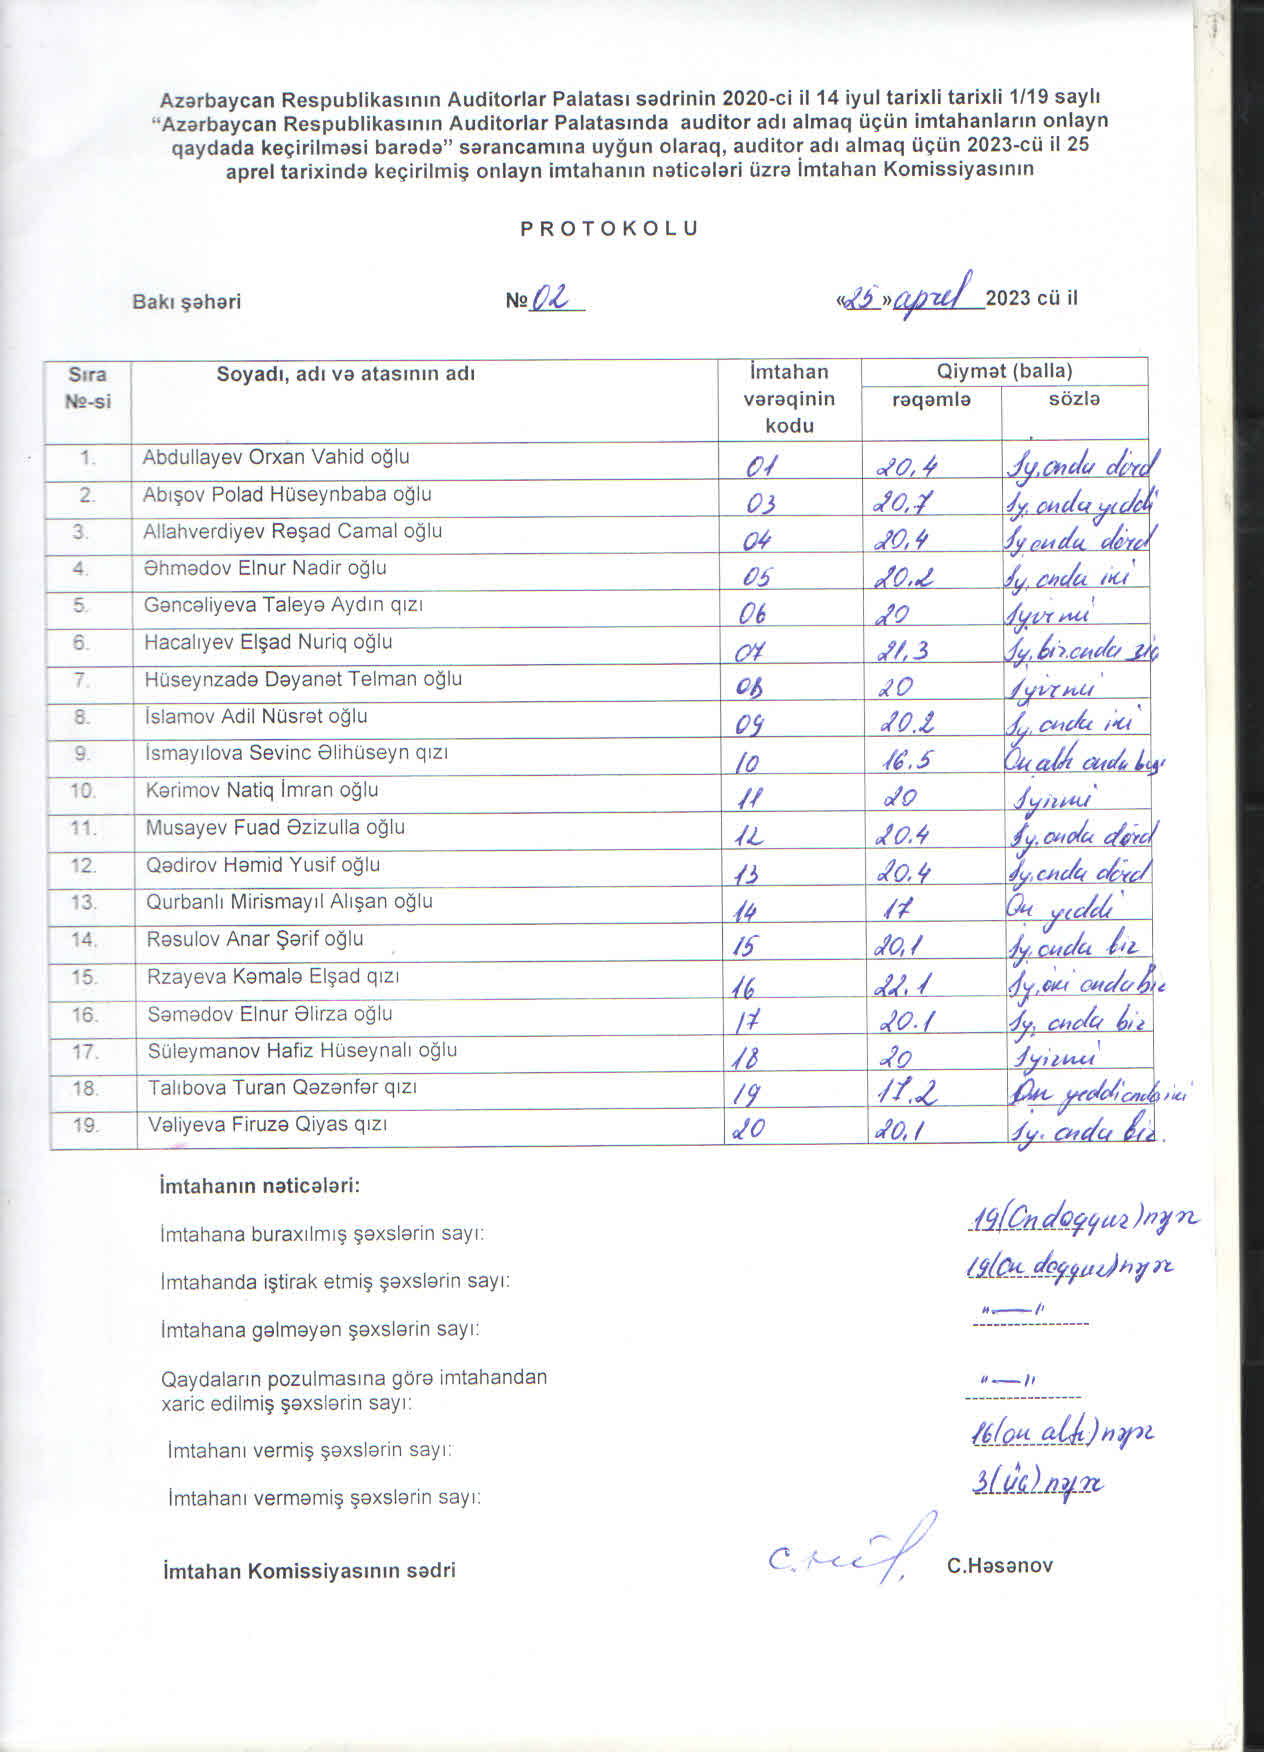 Azərbaycan Respublikasının Auditorlar Palatası sədrinin 2020-ci il 14 iyul tarixli tarixli 1/19 saylı
“Azərbaycan Respublikasının Auditorlar Palatasında auditor adı almaq üçün imtahanların onlayn
qaydada keçirilməsi barədə” sərancamına uyğun olaraq, auditor adı almaq üçün 2023-cü il 25
aprel tarixində keçirilmiş onlayn imtahanın nəticələri üzrə İmtahan Komissiyasının
PROTOKOLU
Bakı şəhəri № 02 «25» aprel 2023 cü il
Sıra №-si Soyadı, adı və atasının adı İmtahan vərəqinin kodu Qiymət (balla)
rəqəmlə sözlə
1. Abdullayev Orxan Vahid oğlu 01 20,4 İy, onda dörd
2. Abışov Polad Hüseynbaba oğlu 03 20,7 İy, onda yeddi
3. Allahverdiyev Rəşad Camal oğlu 04 20,4 İy onda dörd
4. Əhmədov Elnur Nadir oğlu 05 20.2 İy, onda iki
5. Gəncəliyeva Taleyə Aydın qızı 06 20 İyirmi
6. Hacalıyev Elşad Nuriq oğlu 07 21,3 İy, bir onda üç
7. Hüseynzadə Dəyanət Telman oğlu 08 20 İyirmi
8. İslamov Adil Nüsrət oğlu 09 20.2 İy, onda iki
9. İsmayılova Sevinc Əlihüseyn qızı 10 16.5 On altı onda beş
10. Kərimov Natiq İmran oğlu 11 20 İyirmi
11. Musayev Fuad Əzizulla oğlu 12 20.4 İy. onda dörd
12. Qədirov Həmid Yusif oğlu 13 20.4 İy, onda dörd
13. Qurbanlı Mirismayıl Alışan oğlu 14 17 On yeddi
14. Rəsulov Anar Şərif oğlu 15 20,1 İy, onda bir
15. Rzayeva Kəmalə Elşad qızı 16 22.1 İy, iki onda bir
16. Səmədov Elnur Əlirza oğlu 17 20.1 İy, onda bir
17. Süleymanov Hafiz Hüseynalı oğlu 18 20 İyirmi
18. Talıbova Turan Qəzənfər qızı 19 17.2 On yeddi onda iki
19. Vəliyeva Firuzə Qiyas qızı 20 20,1 İy. onda bir.
İmtahanın nəticələri:
İmtahana buraxılmış şəxslərin sayı: 19(On doqquz)nəfər
İmtahanda iştirak etmiş şəxslərin sayı: 19(on doqquz)nəfər
İmtahana gəlməyən şəxslərin sayı: "—"
Qaydaların pozulmasına görə imtahandan
xaric edilmiş şəxslərin sayı: "—"
İmtahanı vermiş şəxslərin sayı: 16(on altı)nəfər
İmtahanı verməmiş şəxslərin sayı: 3(üç)nəfər
İmtahan Komissiyasının sədri C.Həsənov